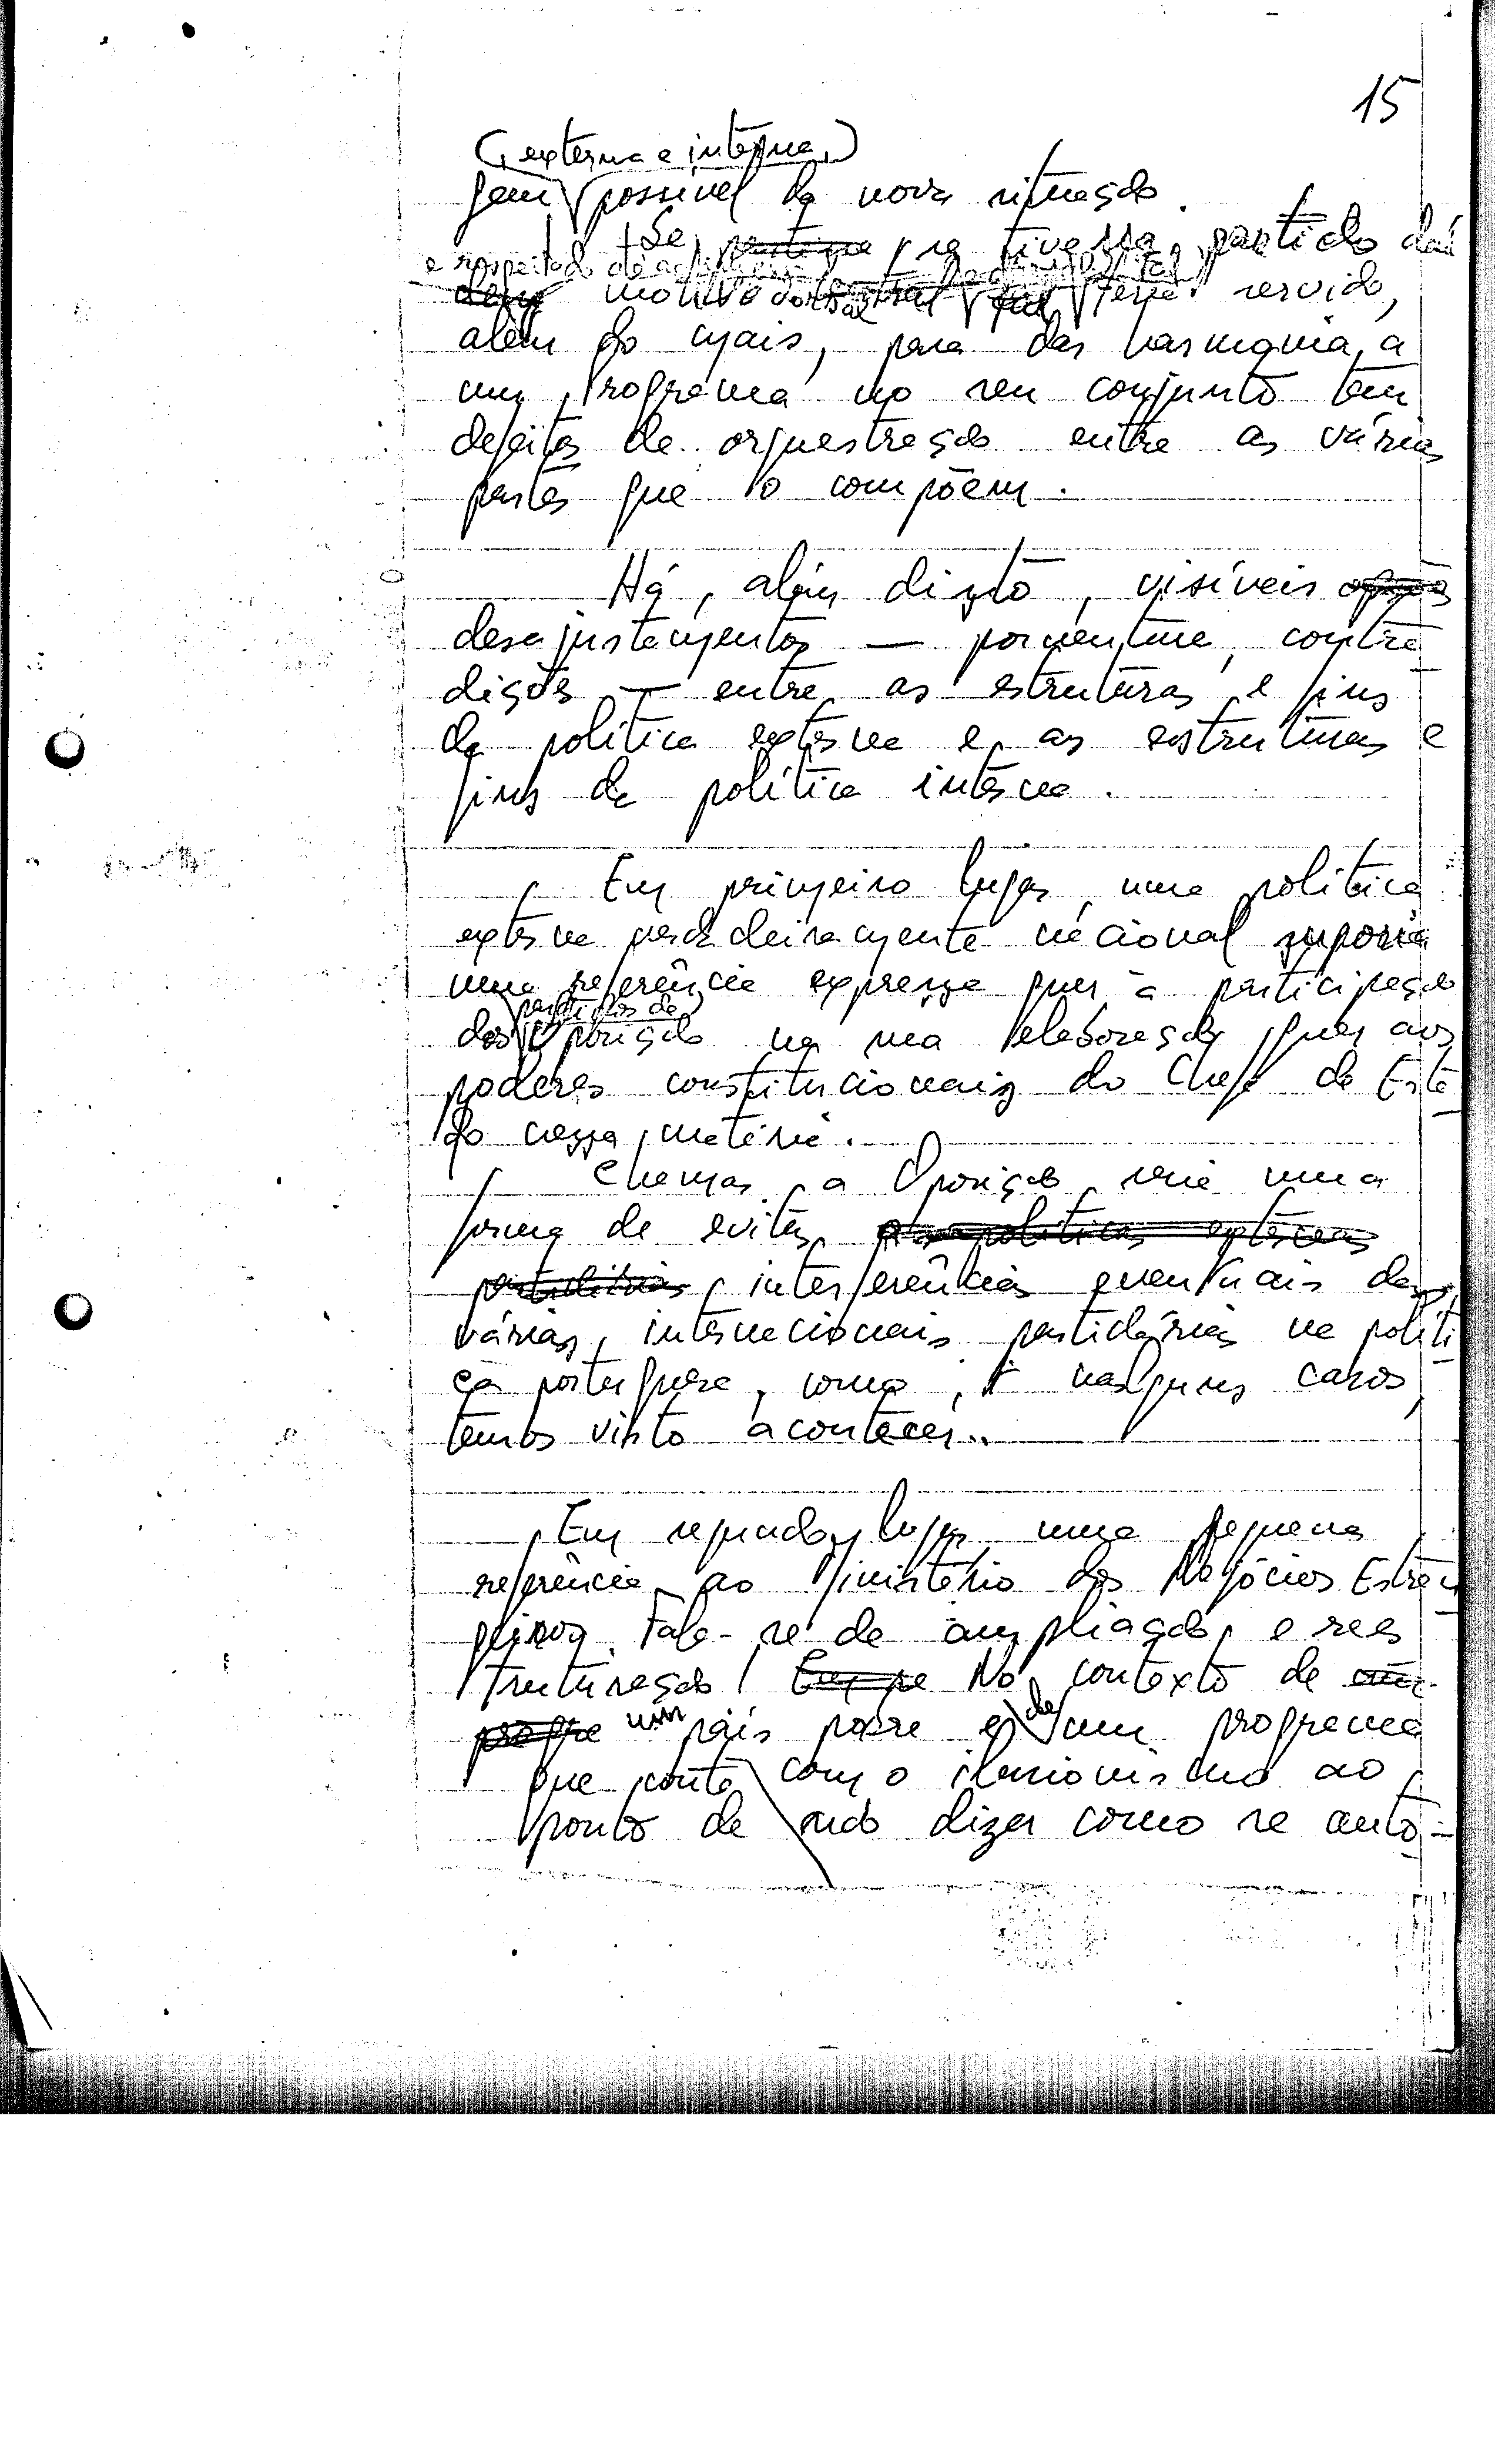 15
(externa e interna)
gem possível da nova situação.
Se se tivesse partido daí
e respeitado
motivo teria servido,
além do mais, para dar harmonia a
um Programa no seu conjunto tem
defeitos de orquestração entre as várias
partes que o compõem.
Há, além disto, visíveis
desajustamentos — porventura, contra
dições — entre as estruturas e fins
da política externa e as estruturas e
fins da política interna.
Em primeiro lugar, uma política
externa verdadeiramente nacional suporia
uma referência expressa quer à participação
partidos da
dos Oposição na sua elaboração, quer aos
poderes constitucionais do Chefe de Esta
do nessa matéria.
Chamar a Oposição seria uma
forma de evitar políticas externas
partidárias interferências eventuais das
várias internacionais partidárias na políti
ca portuguesa, como, nalguns casos,
temos visto acontecer..
Em segundo lugar uma pequena
referência ao Ministério dos Negócios Estran
geiros. Fala-se de ampliação e rees
truturação! No contexto de
um país pobre e de um programa
que conta com o ilusionismo ao
ponto de não dizer como se auto-